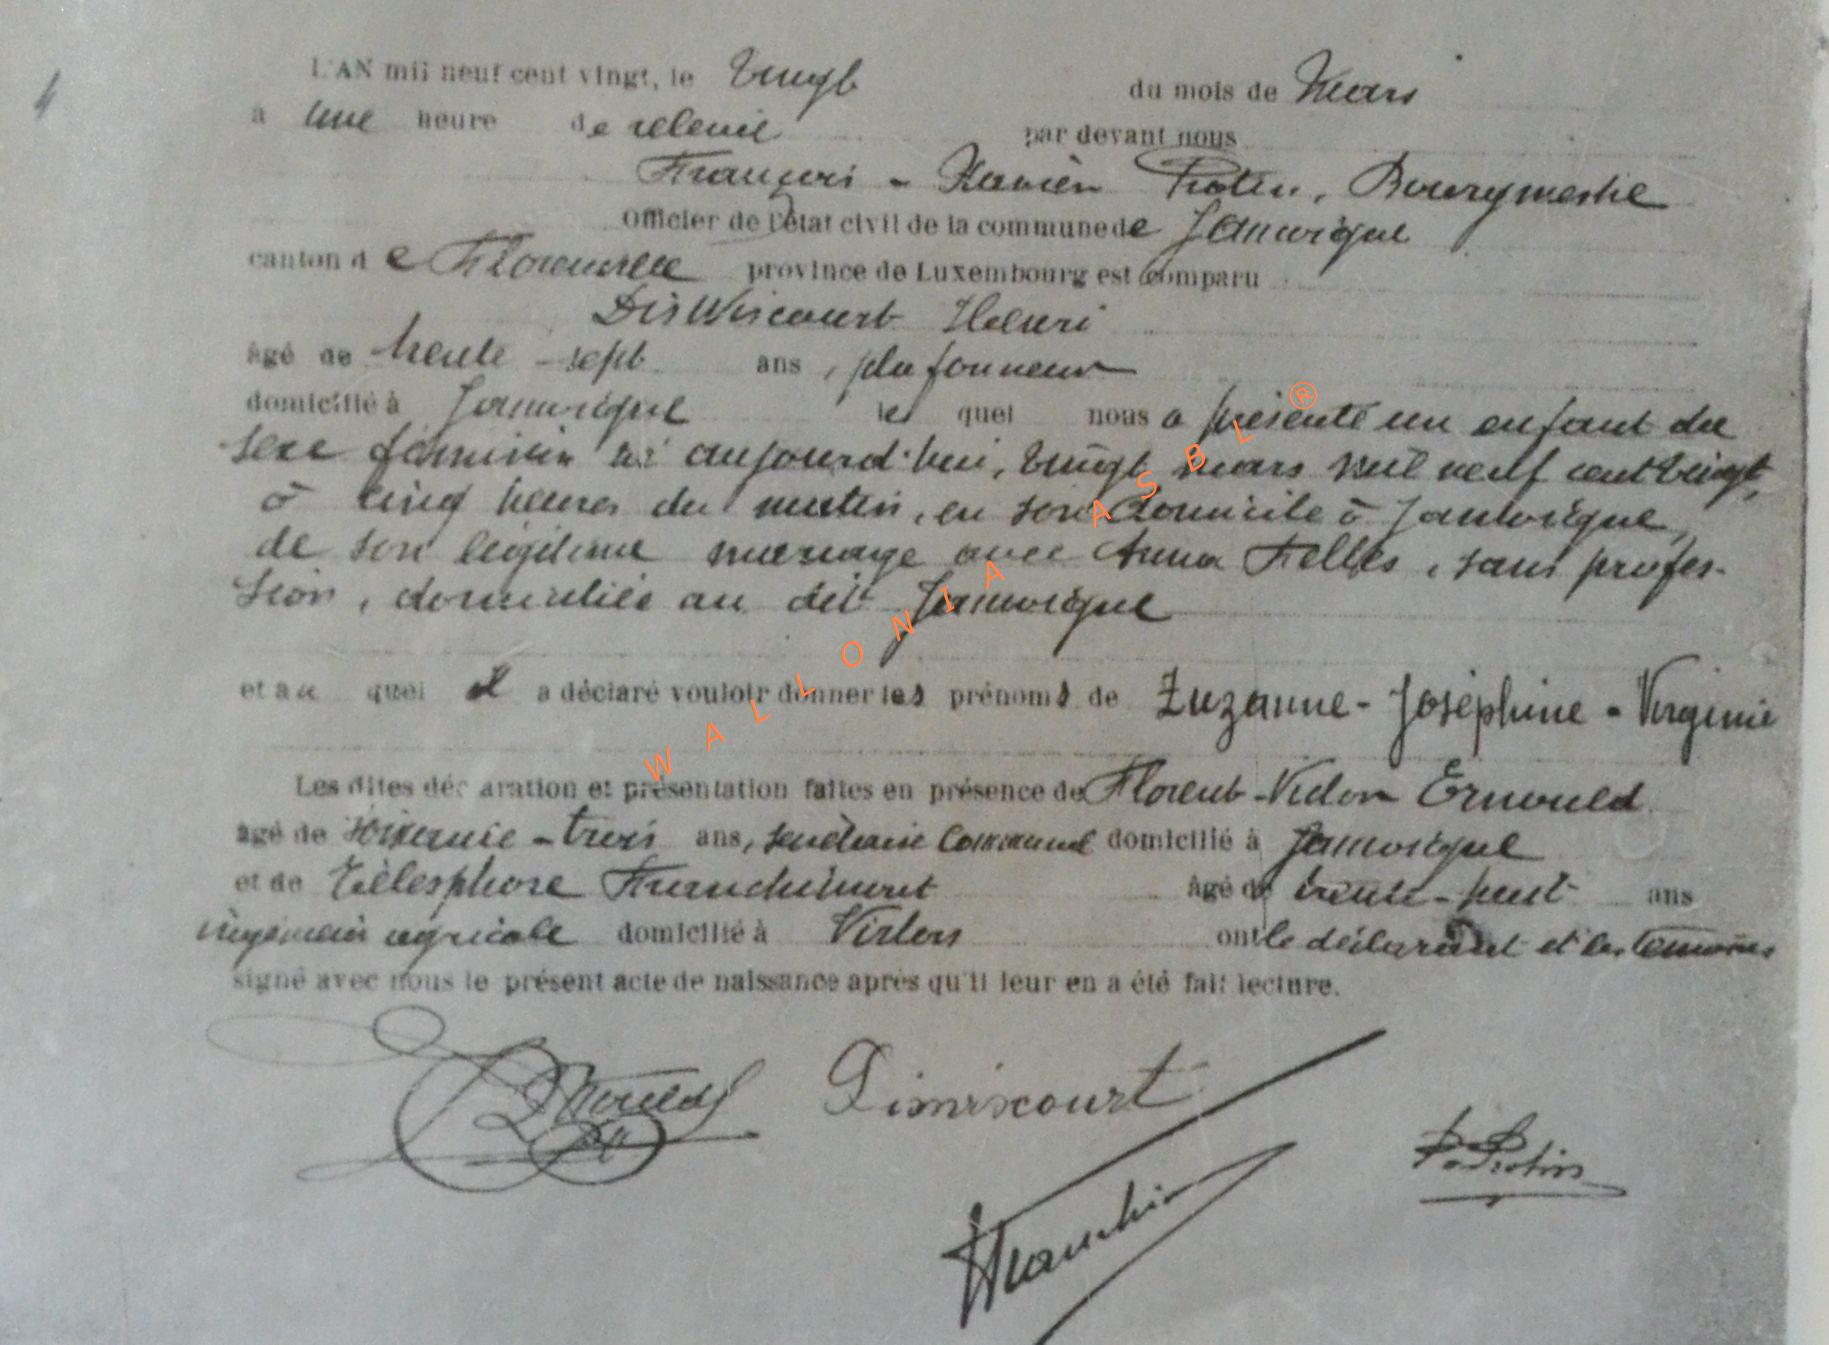 4
L'AN mil neuf cent vingt, le Vingt du mois de Mars
a une heure de relevée par devant nous
François - Xavier Protin, Bourgmestre
Officier de l'état civil de la commune de Jamoigne
canton de Florenville province de Luxembourg est comparu
Disiviscourt Henri
âgé de trente - sept ans, plafonneur
domicilié à Jamoigne le quel nous a présenté un enfant du
sexe féminin né aujourd'hui, vingt mars mil neuf cent vingt,
à cinq heures du matin, en son domicile à Jamoigne,
de son légitime mariage avec Anna Felles, sans profes-
sion, domiciliée au dit Jamoigne
et au quel il a déclaré vouloir donner les prénoms de Zuzanne - Joséphine - Virginie
Les dites déclaration et présentation faites en présence de Florent - Victor Ernould
âgé de soixante - trois ans, secrétaire communal domicilié à Jamoigne
et de Télesphore Franchimont âgé de trente - huit ans
ingénieur agricole domicilié à Virton ont le déclarant et les témoins
signé avec nous le présent acte de naissance après qu'il leur en a été fait lecture.
Ernould Dismiscourt
Franchi
Protin
WALLONIA ASBL ®